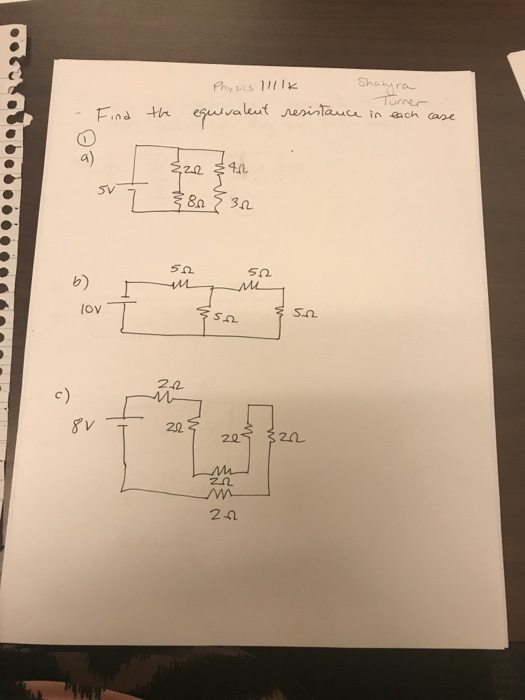 Physics 1111K
Shatyra
Turner
- Find the equivalent resistance in each case
①
a)
2Ω 4Ω
5V
8Ω 3Ω
b)
5Ω 5Ω
10V
5Ω 5Ω
c)
2Ω
8V
2Ω
2Ω 2Ω
2Ω
2Ω